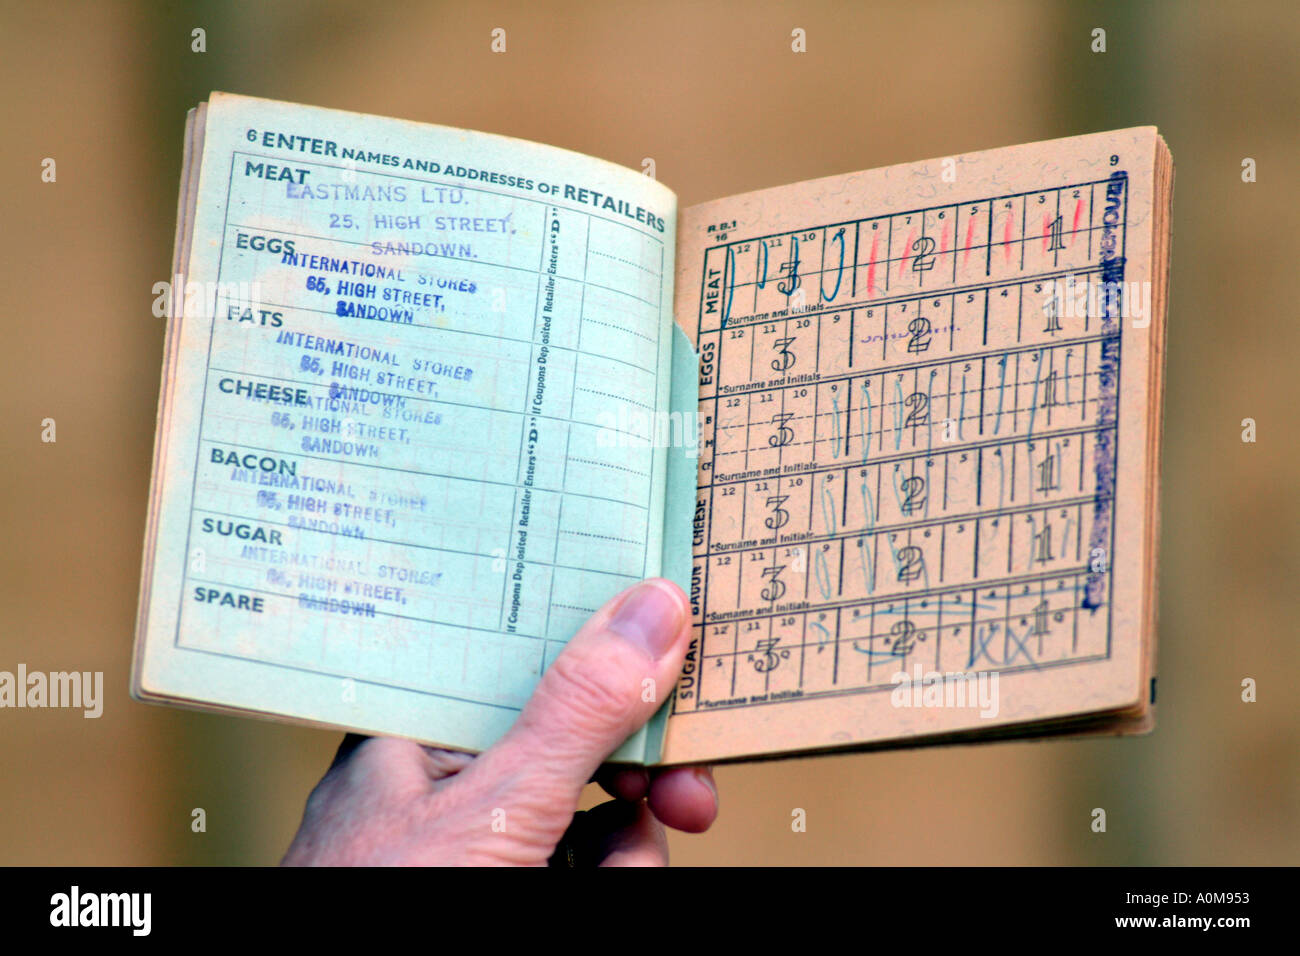 6 ENTER NAMES AND ADDRESSES OF RETAILERS
MEAT
EASTMANS LTD.
25, HIGH STREET.
SANDOWN.
EGGS
INTERNATIONAL STORES
65, HIGH STREET,
SANDOWN
FATS
INTERNATIONAL STORES
65, HIGH STREET,
SANDOWN
CHEESE
INTERNATIONAL STORES
65, HIGH STREET,
SANDOWN
BACON
INTERNATIONAL STORES
65, HIGH STREET,
SANDOWN
SUGAR
INTERNATIONAL STORES
65, HIGH STREET,
SANDOWN
SPARE
If Coupons Deposited Retailer Enters "D"
If Coupons Deposited Retailer Enters "D"
9
R.B.1
16
MEAT
12 11 10 9 8 7 6 5 4 3 2
3 2 1
Surname and Initials
EGGS
12 11 10 8 7 6 5 4 3 2
3 2 1
*Surname and Initials
12 11 10 9 8 7 6 5 4 3 2
3 2 1
*Surname and Initials
CHEESE
12 11 10 9 8 7 6 5 4 3 2
3 2 1
*Surname and Initials
BACON
12 11 10 9 8 7 6 5 4 3
3 2 1
*Surname and Initials
SUGAR
12 11 10 9 8 7 6 5 4 3 2
3 2 1
*Surname and Initials
alamy
alamy
www.alamy.com
Image ID: A0M953